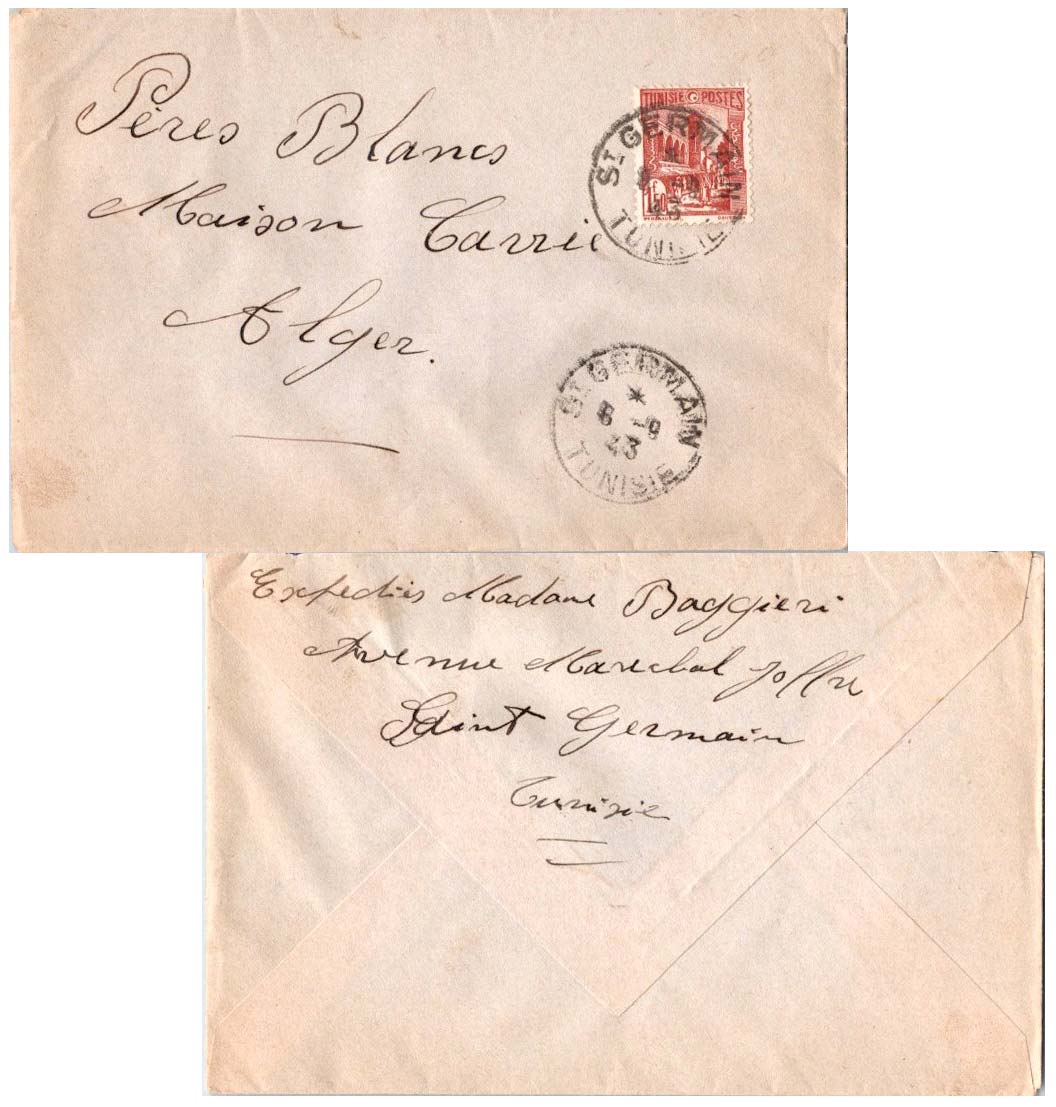 Pères Blancs
Maison Carrée
Alger.
TUNISIE POSTES
1F50
ST GERMAIN
8 -9
43
TUNISIE
ST GERMAIN
8 -9
43
TUNISIE
Madame Baggieri
Avenue Marechal Joffre
Saint Germain
Tunisie